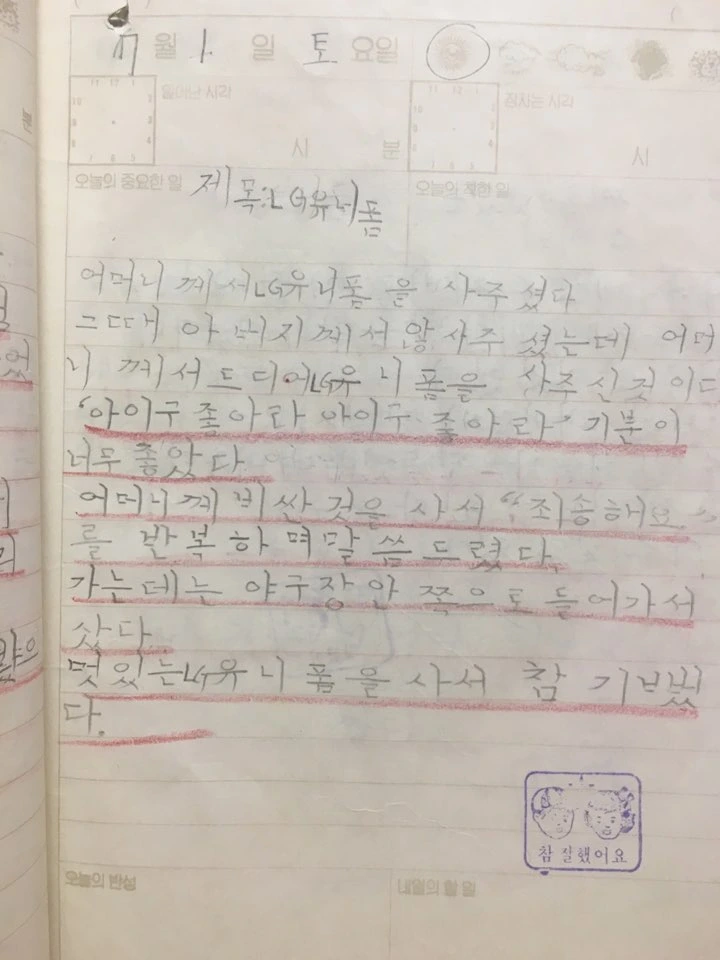 7월 1일 토요일
일어난 시각 시 분
잠자는 시각 시
오늘의 중요한 일 제목:LG유니폼
오늘의 착한 일
어머니께서LG유니폼을 사주셨다
그때 아버지께서 않사주셨는데 어머
니께서 드디어LG유니폼을 사주신것이다
“아이구 좋아라 아이구 좋아라” 기분이
너무 좋았다.
어머니께 비싼것을 사서 “죄송해요.”
를 반복하며말씀드렸다.
가는데는 야구장안쪽으로 들어가서
샀다.
멋있는LG유니폼을 사서 참 기뻤
다.
참 잘했어요
오늘의 반성
내일의 할 일